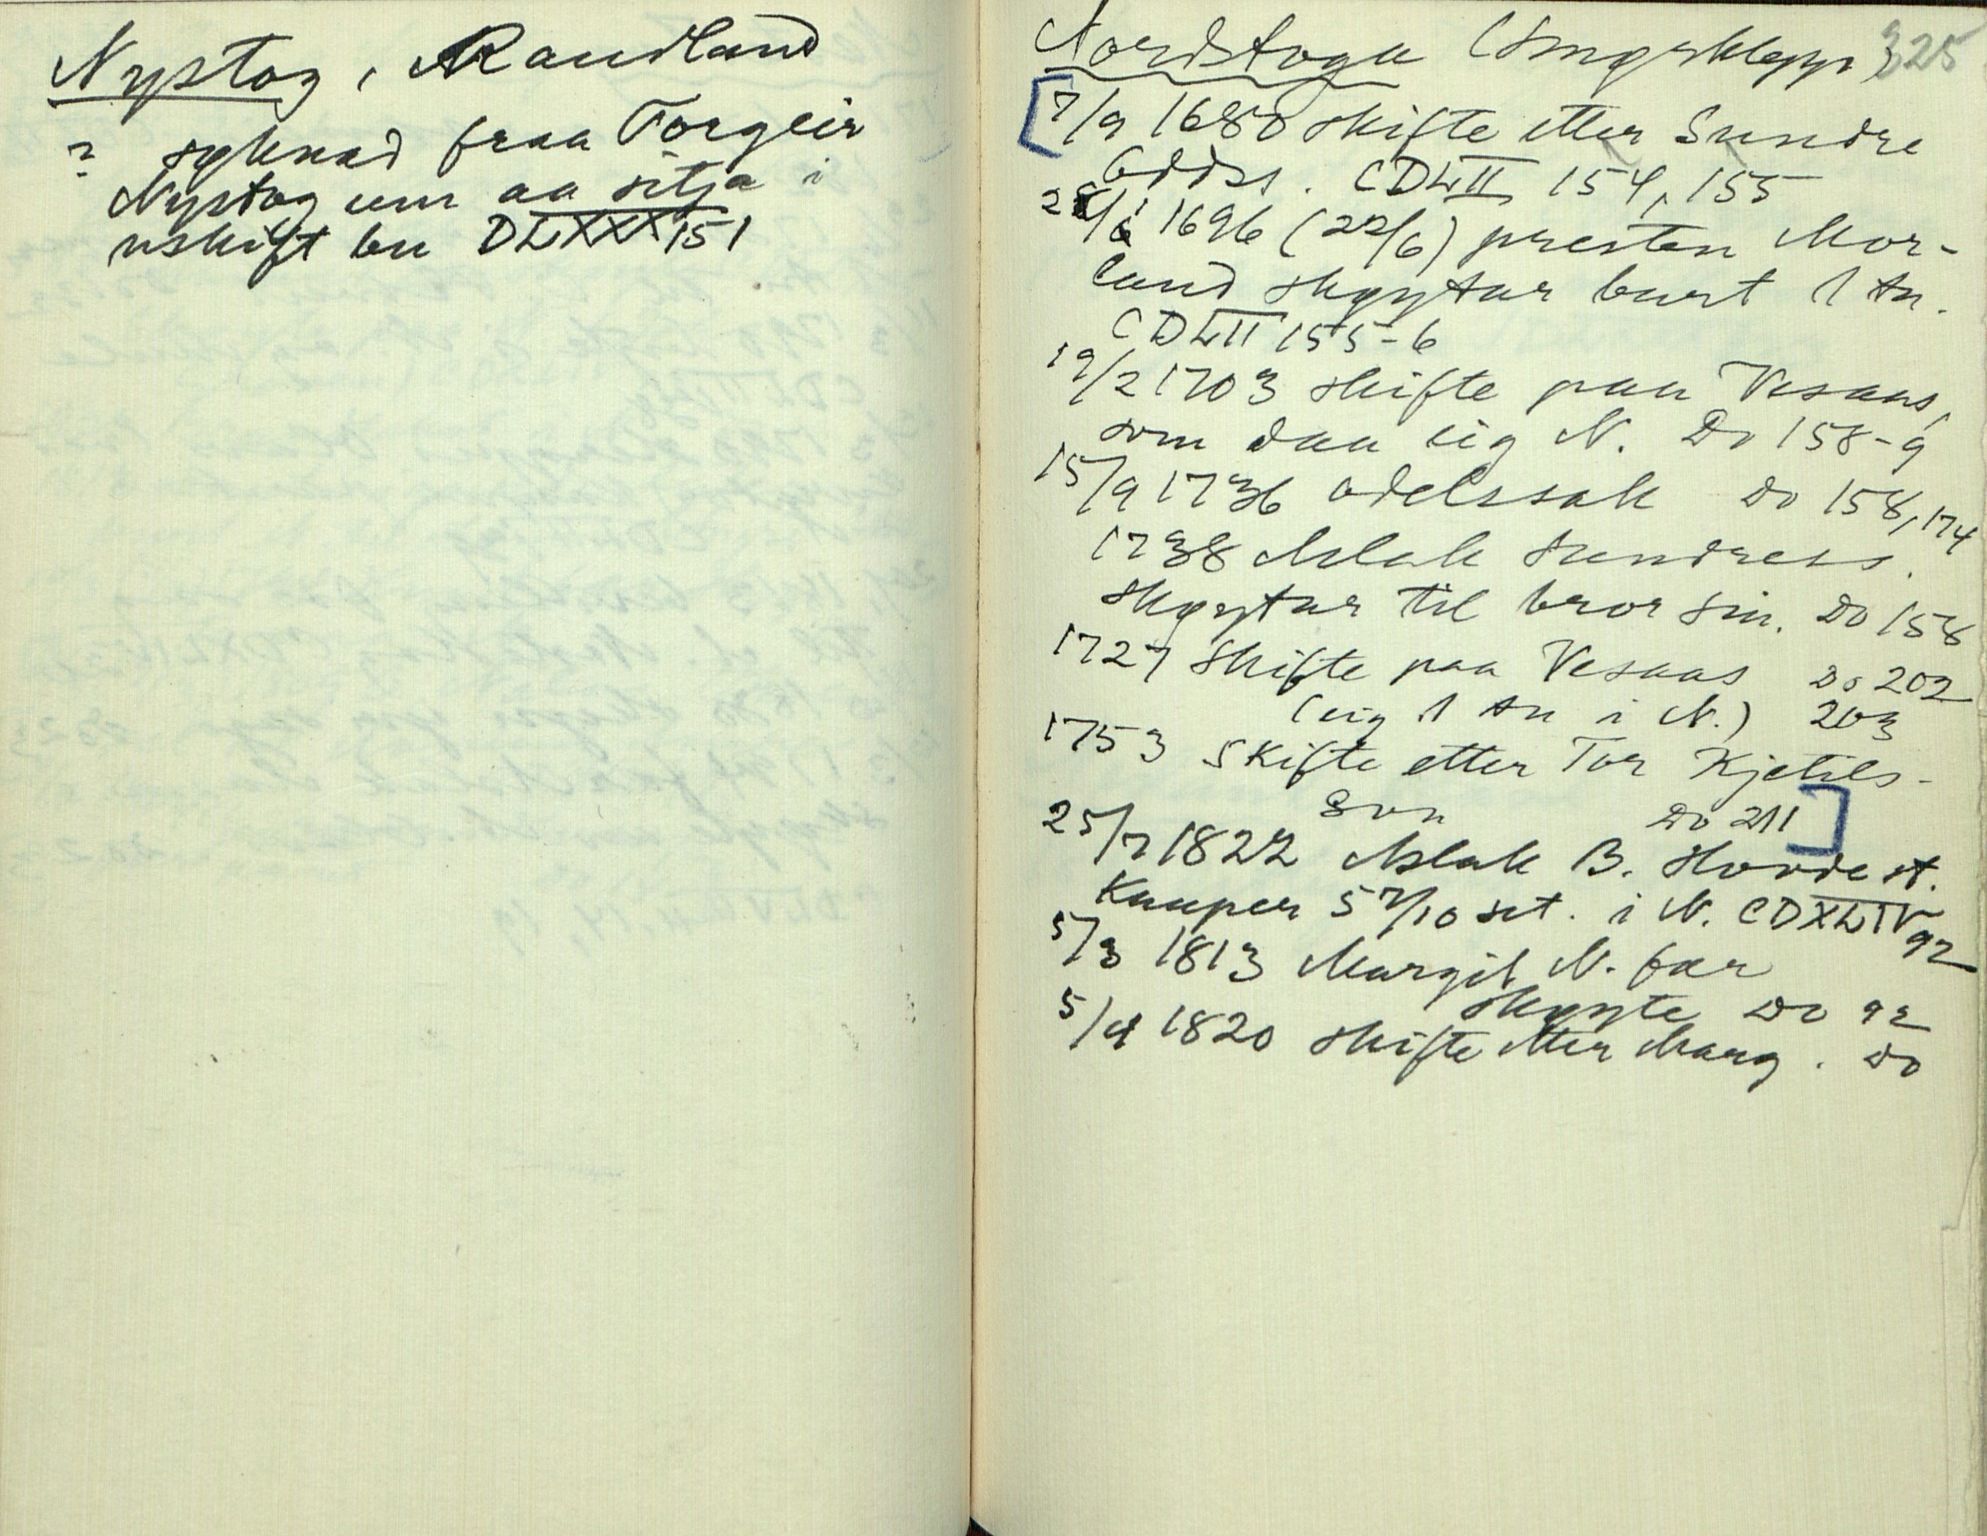 Nystog, Raudland
? syknad fraa Torgeir
Nystog um aa sitja i
uskift bu DLXXX 151
Nordstoga (Smørklepp) 325
[7/9 1680 skifte etter Sundre
Odds. CDLII 154, 155
1696 (22/6) presten Mor-
land skøytar burt 1 tn.
CDLII 155-6
19/2 1703 skifte paa Vesaas,
som daa eig N. Do 158-9
15/9 1736 odelssak Do 158, 174
1738 Aslak Sundress.
skøytar til bror sin. Do 158
1727 Skifte paa Vesaas Do 202
(eig 1 tn i N.) 203
1753 Skifte etter Tor Kjetils-
son Do 211]
25/7 1822 Aslak B. Hovdest.
Kauper 5 7/10 set. i N. CDXLIV 92
5/3 1813 Margit N. fær
skøyte Do 92
5/4 1820 skifte etter Marg. Do